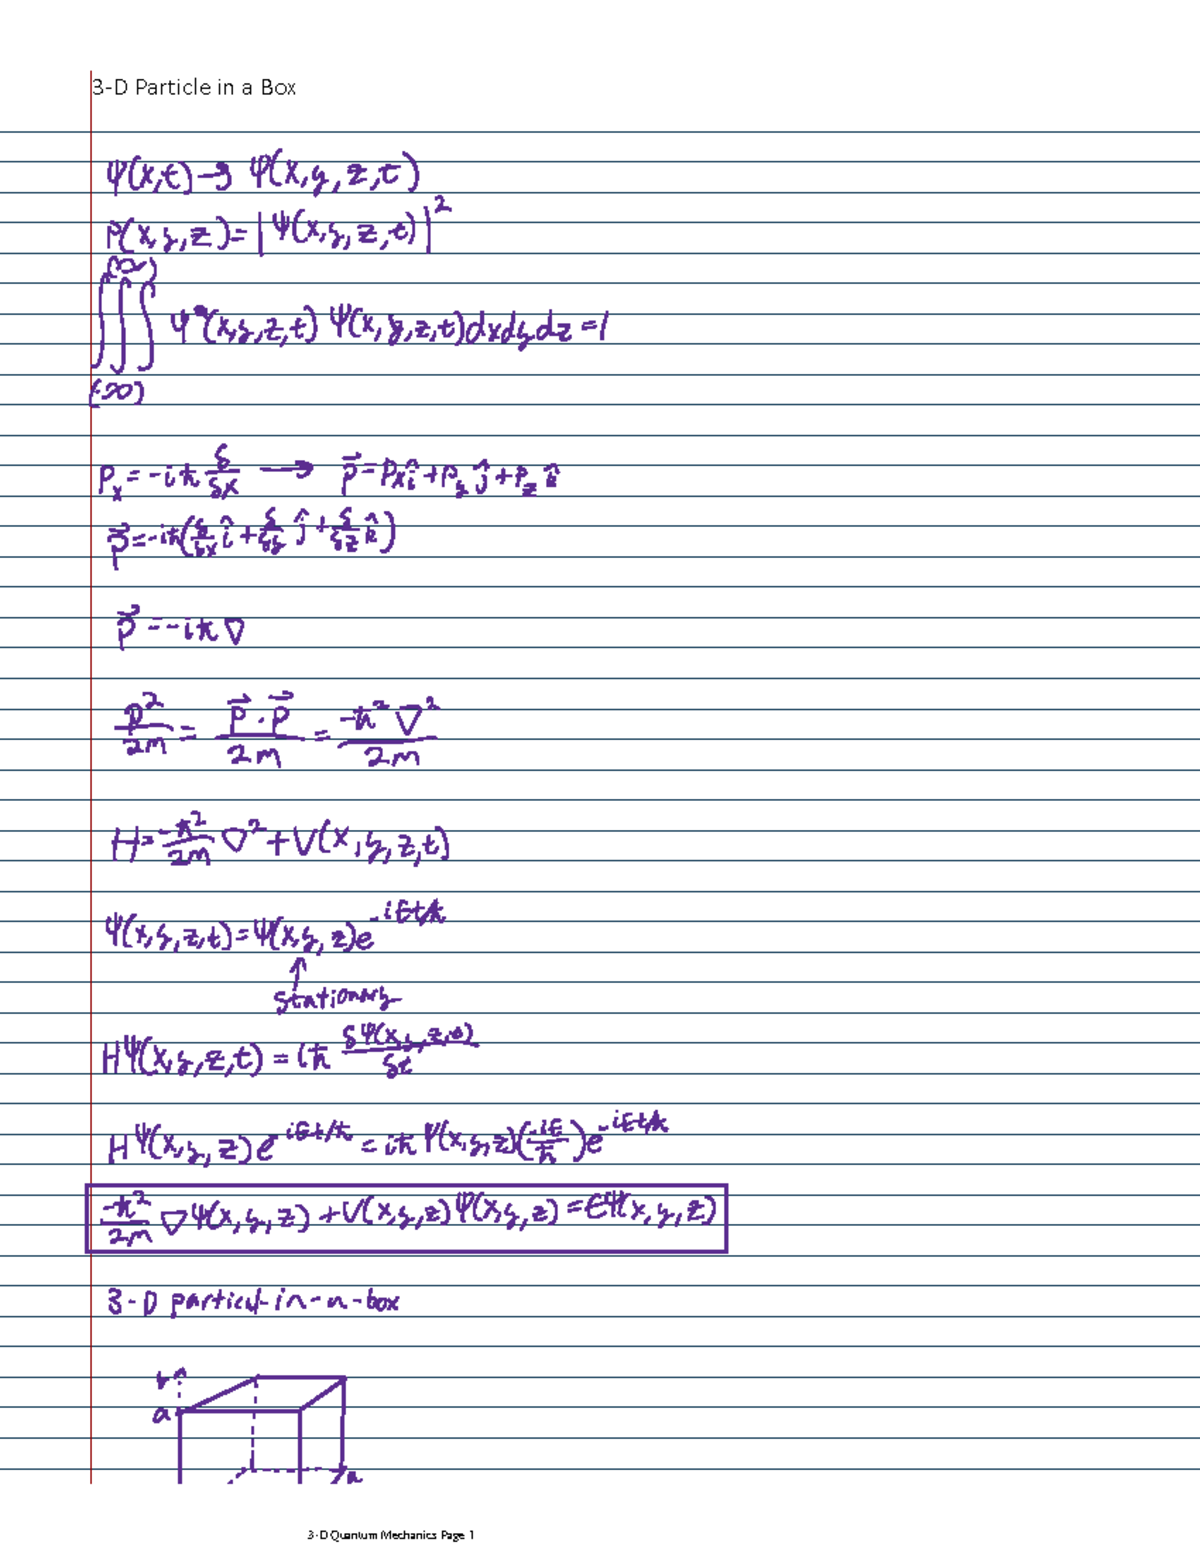 3-D Particle in a Box
Ψ(x,t) → Ψ(x,y,z,t)
P(x,y,z) = |Ψ(x,y,z,t)|²
(∞)
∫∫∫ Ψ*(x,y,z,t) Ψ(x,y,z,t) dxdydz = 1
(-∞)
Pₓ = -iħ δ/δx → p⃗ = Pₓî + P_y ĵ + P_z k̂
p⃗ = -iħ(δ/δx î + δ/δy ĵ + δ/δz k̂)
p⃗ = -iħ∇
p²/2m = p⃗·p⃗/2m = -ħ²∇²/2m
H = -ħ²/2m ∇² + V(x,y,z,t)
Ψ(x,y,z,t) = Ψ(x,y,z)e^-iEt/ħ
↑
stationary
HΨ(x,y,z,t) = iħ δΨ(x,y,z,t)/δt
HΨ(x,y,z)e^iEt/ħ = iħ Ψ(x,y,z)(-iE/ħ)e^-iEt/ħ
-ħ²/2m ∇Ψ(x,y,z) + V(x,y,z)Ψ(x,y,z) = EΨ(x,y,z)
3-D particl-in-a-box
y
a
a
3-D Quantum Mechanics Page 1